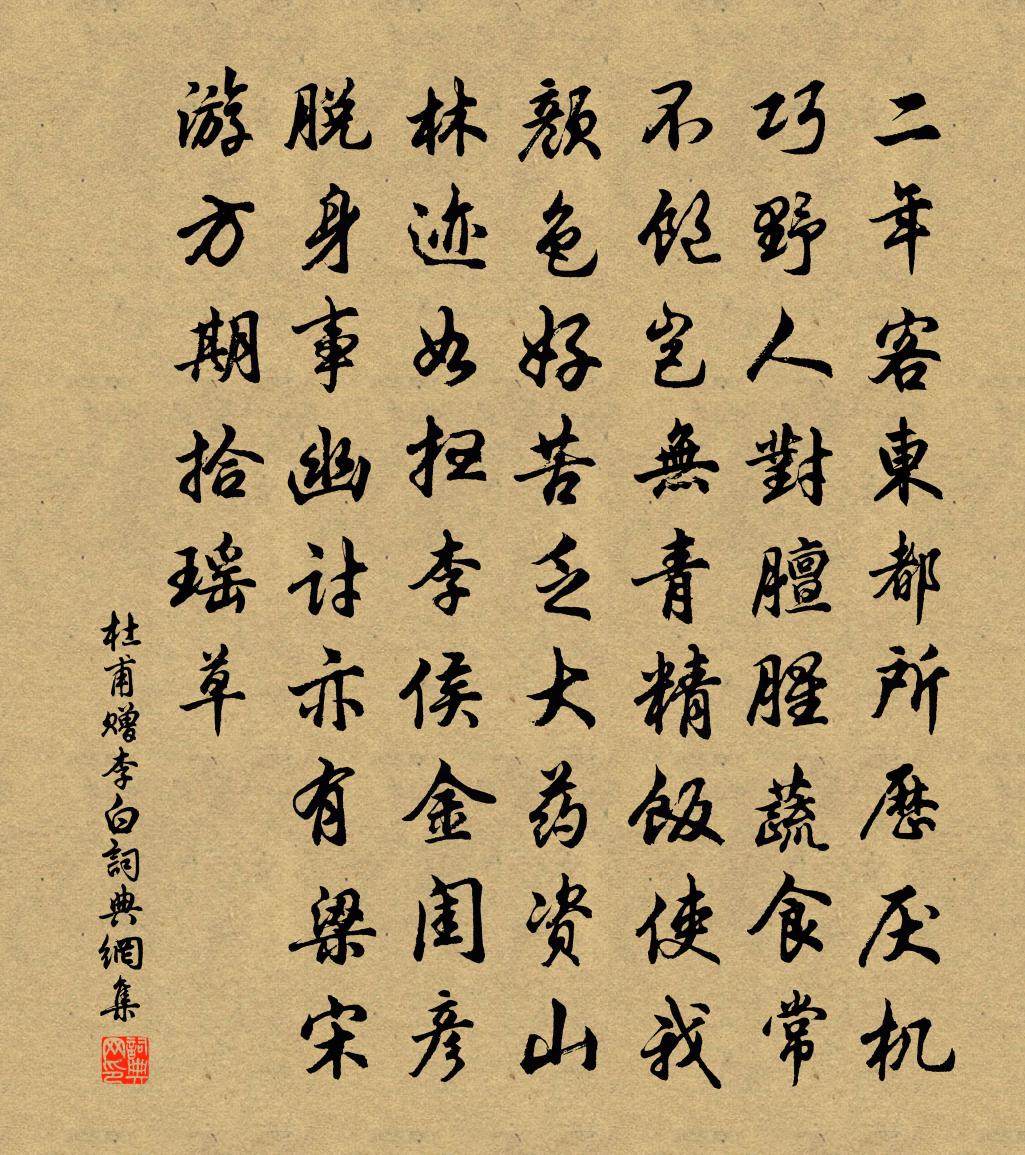 二年客東都所歷厌机
巧野人對膻腥蔬食常
不飽岂無青精飯使我
顏色好苦乏大药资山
林迹如扫李侯金閨彥
脱身事幽討亦有梁宋
游方期拾瑶草
杜甫赠李白詞典網集
詞典网印